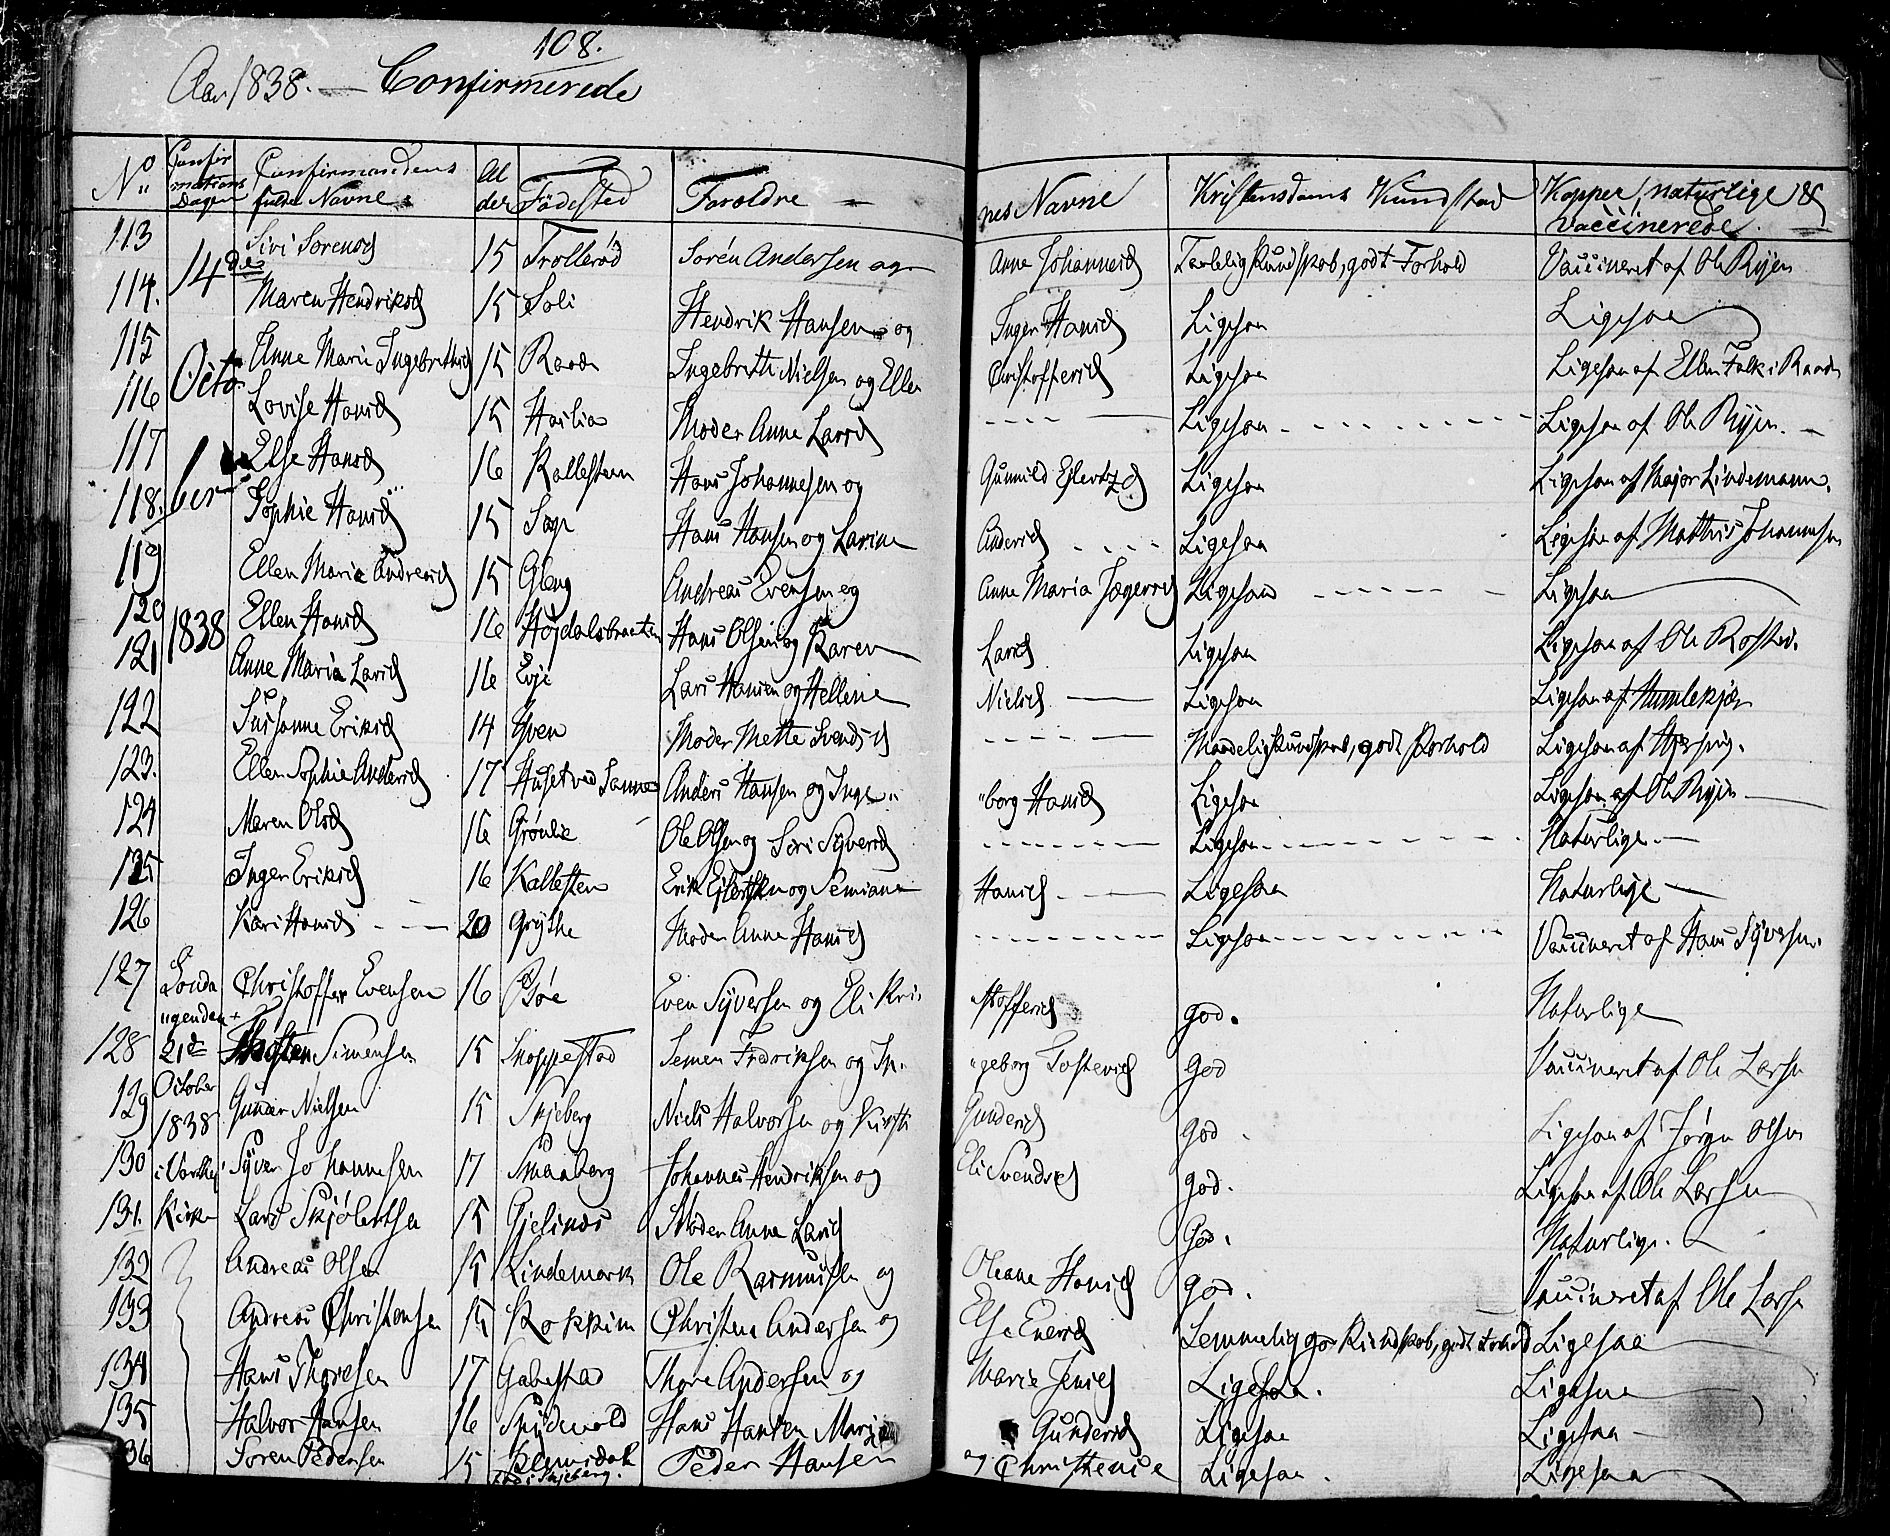 108.
Aar 1838. — Confirmerede
No Confirmations Dagen Confirmandens fulde Navne Alder Födested Foroldre — nes Navne Kristendoms Kundskab Kopper, naturlige & Vaccinerede.
113 14de Siri Sörensd 15 Trollerød Sören Andersen og Anne Johannesd Taalelig Kundskab, godt Forhold Vaccineret af Ole Ryen
114. Maren Hendriksd 15 Soli Hendrik Hansen og Inger Hansd Ligesaa Ligesaa
115 Octo Anne Marie Ingebrethsd 15 Raade Ingebreth Nielsen og Ellen Christoffersd Ligesaa Ligesaa af Ellen Falk i Raade
116 Lovise Hansd 15 Haslia Moder Anne Larsd ---- — Ligesaa - - - Ligesaa af Ole Ryen. —
117 Else Hansd 16 Kallesteen Hans Johannesen og Gunnild Eilertsd Ligesaa Ligesaa af Major Lindemann.
118. ber Sophie Hansd 15 Hans Hansen og Larine Andersd - - - Ligesaa Ligesaa af Mathis Johannesen
119 Ellen Maria Andreasd 15 Gleng Andreas Evensen og Anne Maria Jægersd Ligesaa - - - Ligesaa
120 1838 Ellen Hansd 16 Höjdalsbraaten Hans Olsen og Karen Larsd Ligesaa Ligesaa af Ole Rostad.
121 Anne Maria Larsd 16 Evje Lars Hansen og Hellene Nielsd — Ligesaa Ligesaa af Humlekjær
122 Susanne Eriksd 14 Yven Moder Mette Svendsd ---- — Maadelig Kundskab, godt Forhold Ligesaa af
123. Ellen Sophie Andersd 17 Huset ved Sanne Anders Hansen og Inge„ „borg Hansd Ligesaa Ligesaa af Ole Ryen —
124 Maren Olsd 16 Grönlie Ole Olsen og Siri Syversd - - - Ligesaa - - - Naturlige. —
125 Inger Eriksd 16 Kallesten Erik Eilertsen og Semiane Hansd. - — Ligesaa Naturlige —
126 Kari Hansd - - — 20 Grythe Moder Anne Hansd - - - Ligesaa - - - Vaccineret af Hans Syversen.
127 Sonda Christoffer Evensen 16 Böe Even Syversen og Eli Kri- stoffersd God. Naturlige
„genden
128 21de Simensen 15 Snoppestad Semen Fredriksen og In- „geborg Tostensd God Vaccineret af Ole Larsen
129 October Gunder Nielsen 15 Skjeberg Niels Halvorsen og Kirsti Gundersd God. Ligesaa af Jörgen Olsen
1838
130 i Varteig Syver Johannesen 17 Smaaberg Johannes Hendriksen og Eli Svendsd God. Ligesaa af Ole Larsen
131. Kirke Lars Skjölertsen 15 Gjelsnæs Moder Anne Larsd God. Naturlige.
132 Andreas Olsen 15 Lindemark Ole Rasmusen og Oleane Hansd God. Vaccineret af Ole Larsen
133 Andreas Christensen 15 Rokkim Christen Andersen og Else Evensd Temmelig god Kundskab, godt Forhold Ligesaa
134 Hans Thoresen 17 Gabestad Thore Andersen og Marie Jensd Ligesaa. Ligesaa
135 Halvor Hansen 16 Skydevold Hans Hansen Maria Gundersd Ligesaa Ligesaa —
136 Sören Pedersen 15 i Skjeberg. Peder Hansen og Christense Ligesaa. Ligesaa